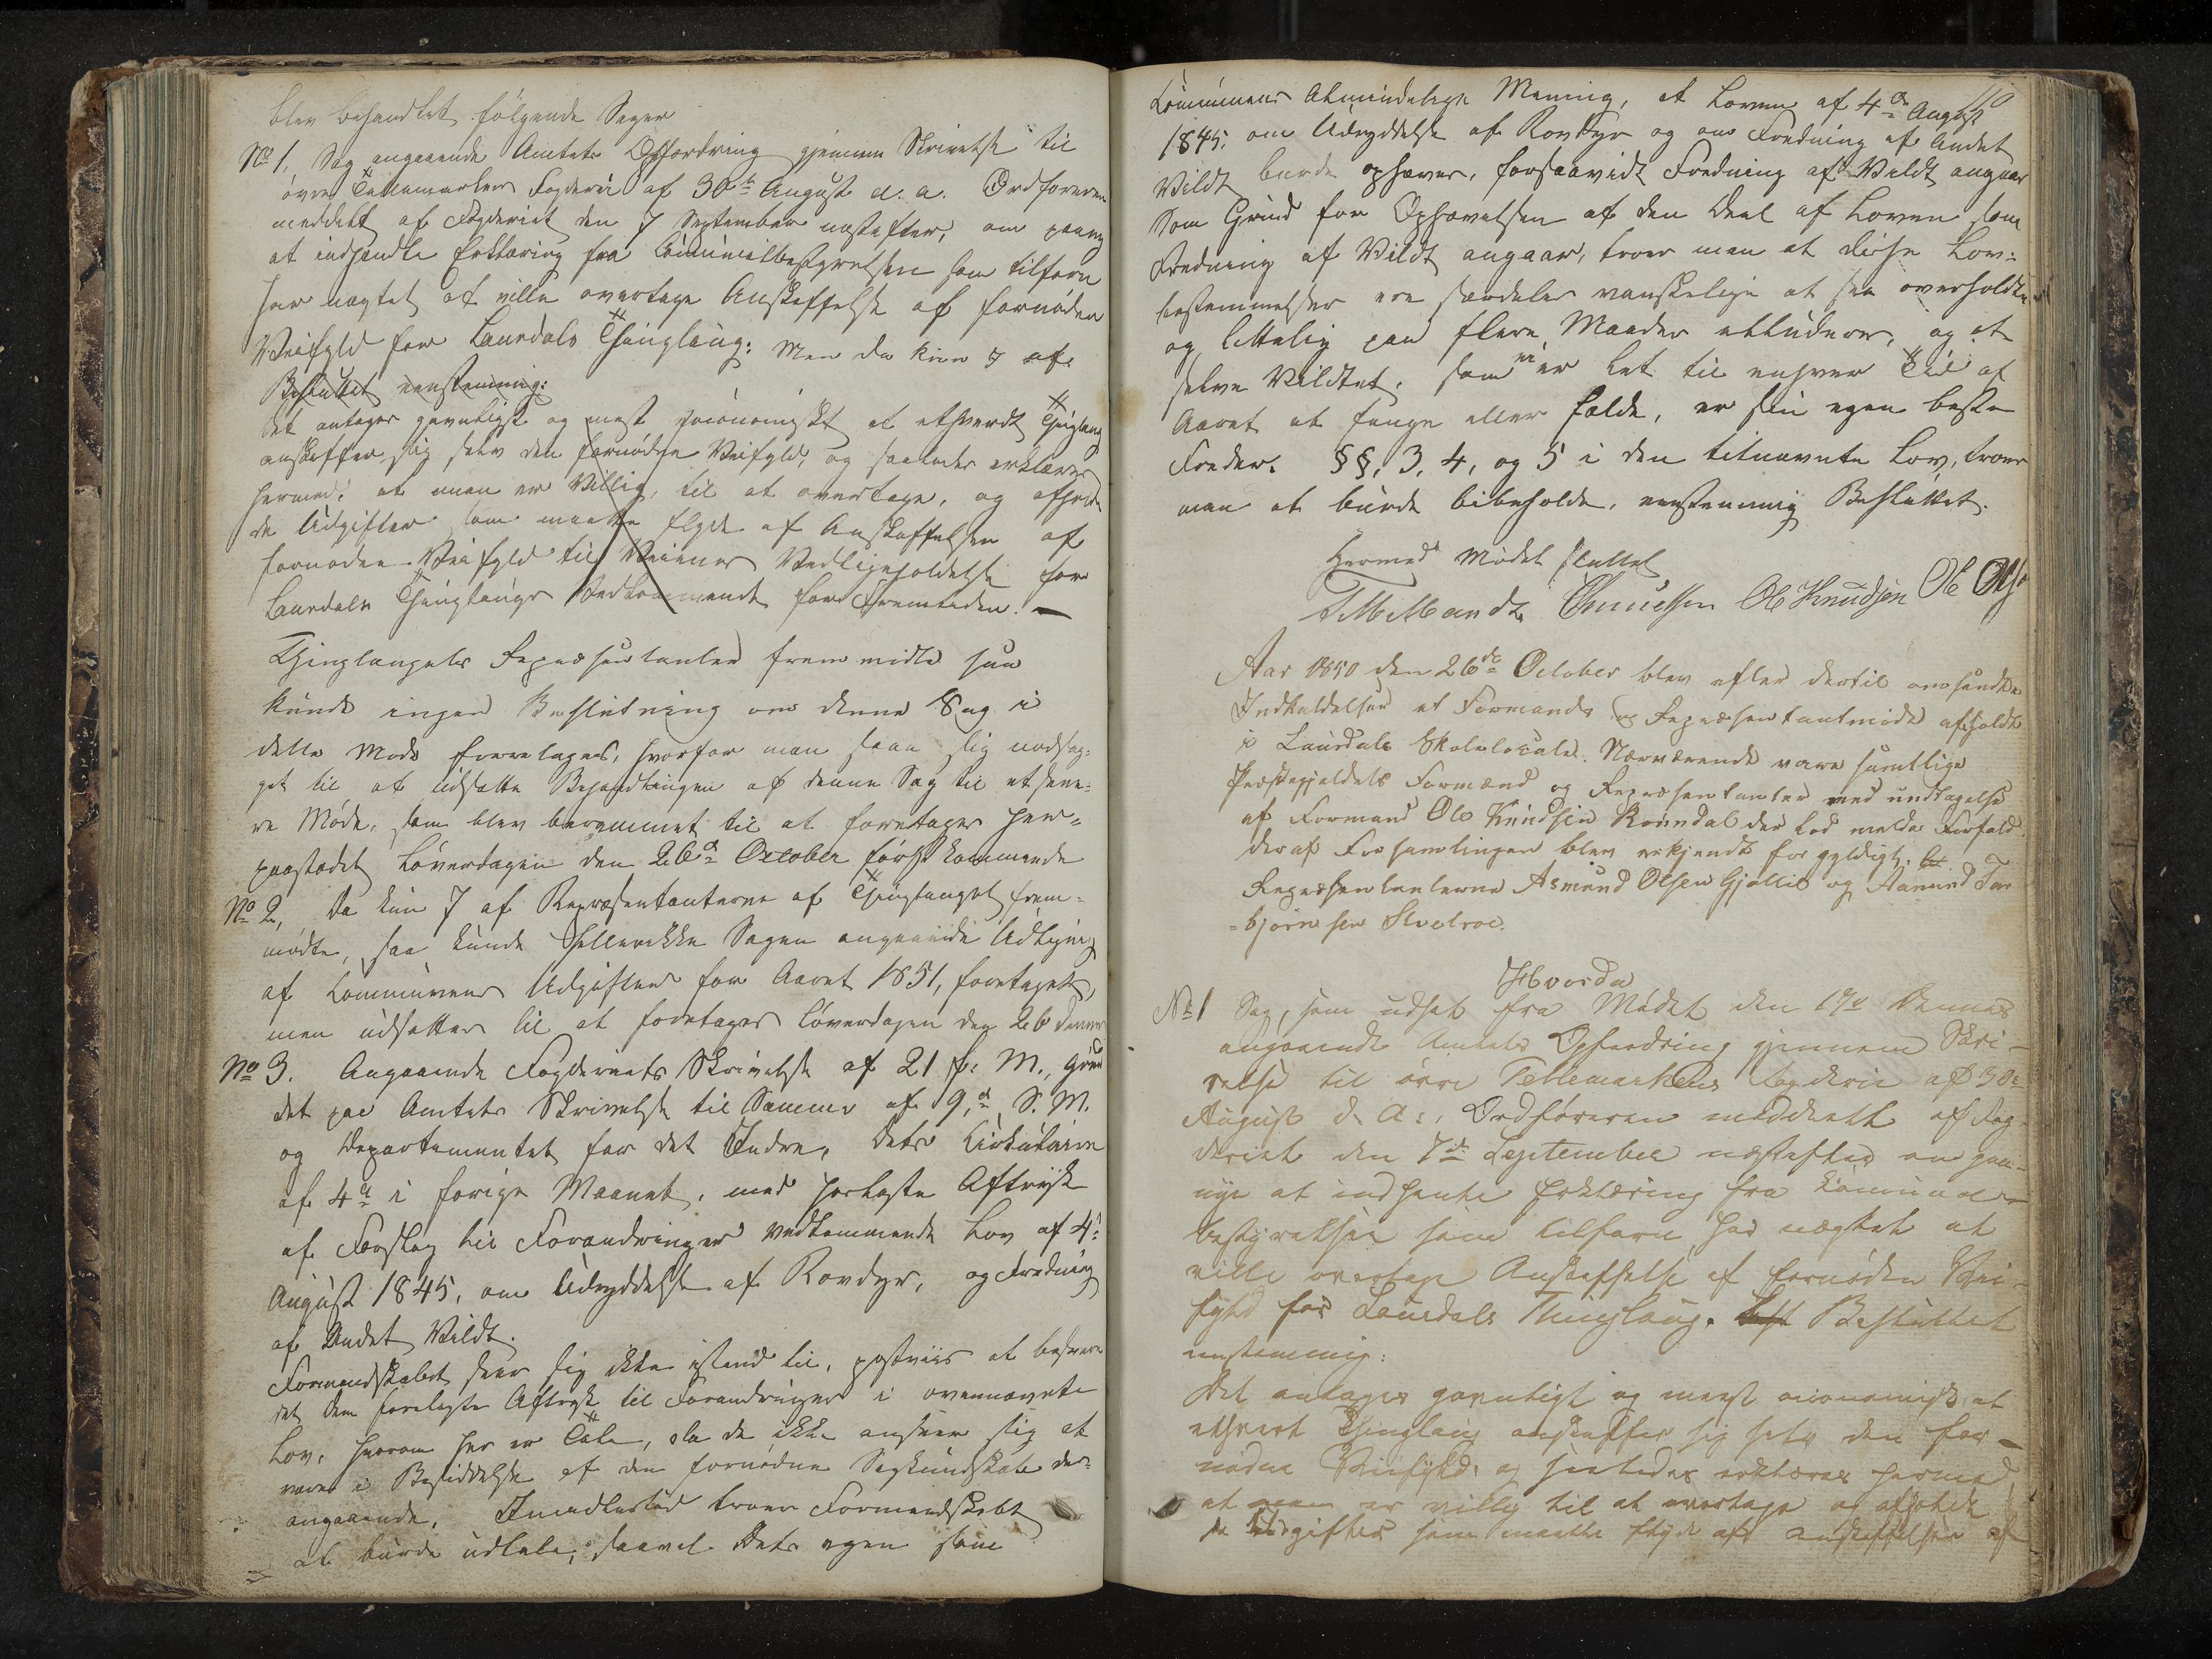 blev behandlet følgende Sager
No 1, Sag angaaende Amtets Opfordring gjennem Skrivelse til
øvre Tellemarkens Fogderie af 30te August d. a. Ordføreren
meddeelt af Fogderiet den 7 September næstefter, om paany
at indhendte Erklæring fra Communalbestyrelsen som tilforn
har nægtet at ville overtage Anskaffelse af fornøden
Veifyld for Laurdals Thinglaug: Men da kun 7 af
Besluttet eenstemmig:
Det antages gavnligst og mest oeconomiskt at ethverdt Thinglaug
anskaffer sig selv den fornødne Veifyld, og saaledes erklæres
hermed, at man er Villig, til at overtage, og afholde
de Udgifter som maatte flyde af Anskaffelsen af
fornøden Veifyld til Veienes Vedligeholdelse for
Laurdals Thinglaugs Vedkommende for Fremtiden. —
Thinglaugets Repræsentanter fremmødte saa
kunde ingen Beslutning om denne Sag i
dette Møde foretages, hvorfor man saae sig nødsag-
get til at udsætte Behandlingen af denne Sag til et sene-
re Møde, som blev berammet til at foretages her-
paastædet Løverdagen den 26de October førstkommende
No 2, Da kun 7 af Repræsentanterne af Thinglauget frem-
mødte, saa kunde Hellerikke Sagen angaaende Udligning
af Communens Udgifter for Aaret 1851, foretages,
men udsættes til at foretages Løverdagen den 26 dennes
No 3. Angaaende Fogderiets Skrivelse af 21 f. M., grun
det paa Amtets Skrivelse til Samme af 9de S. M.
og Departementet for det Indre, dets Cirkulaire
af 4de i forige Maanet, med forlagte Aftryk
af Forslag til Forandringer vedkommende Lov af 4de
August 1845, om Udryddelse af Rovdyr, og Fredning
af Andet Vildt.
Formandskabet seer sig ikke istand til, postviis at besvare
det dem forelagte Aftryk til Forandringer i ovennævnte
Lov, hvorom her er Tale, da de ikke anseer sig at
være i Besiddelse af den fornødne Sagkundskab der-
angaaende. Imidlertid troer Formandskabet
at burde udtale, saavel Dets egen som
110
Communens Almindelige Mening, at Loven af 4de August
1845, om Udryddelse af Rovdyr og om Fredning af Andet
Vildt burde ophæves, forsaavidt Fredning af Vildt angaar
Som Grund for Ophævelsen af den Deel af Loven som
Fredning af Vildt angaar, troer man at disse Lov-
bestemmelser ere særdeles vanskelige at see overholdte
og lettelig paa flere Maader elluderes, og at
selve Vildtet, som ei er let til enhver Tid af
Aaret at fange eller fælde, er sin egen beste
Freder. §§, 3, 4, og 5 i den tilnævnte Lov, troer
man at burde bibeholde, eenstemmig Besluttet.
Hermed Mødet sluttet
Ole Knudsen Ole Ols
Aar 1850 den 26de October blev efter dertil omsendte
Indkaldelser et Formands og Repræsentantmøde afholdt
i Laurdals Skolelocale. Nærværende vare samtlige
Præstegjeldets Formænd og Repræsentanter med undtagelse
af Formand Ole Knudsen Ronndal der lod melde Forfald
deraf Forsamlingen blev erkjendt for gyldigt.
Repræsentanterne Asmund Olsen Gjøllis og Aanund Tor
-bjørnsen
Hvorda
No 1 Sag, som udsat fra Mødet den 19de Dennes
angaaende Amtets Opfordring gjennem Skri-
velse til øvre Tellemarkens Fogderie af 30te
August d. A:, Ordføreren meddeelt af Fog-
deriet den 7de September næstefter om paa-
nye at indhente Erklæring fra Communal-
bestyrelsen som tilforn har nægtet at
ville overtage Anskaffelse af fornøden Vei-
fyld for Laurdals Thinglaug. Besluttet
eenstemmig:
Det antages gavnligst og meest oeconomisk at
ethvert Thinglaug anskaffer sig selv den for-
nødne Veifyld, og saaledes erklæres hermed
at man er villig til at overtage og afholde
de Udgifter som maatte flyde af anskaffelsen af